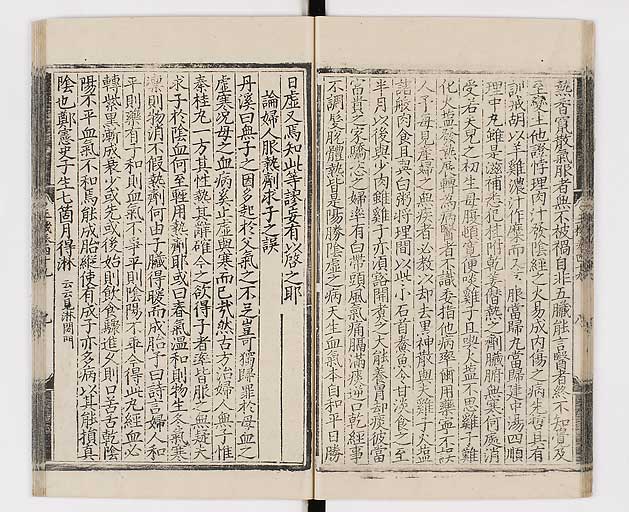 熱香竄散氣服者無不被禍自非五臟能言醫者終不知覺及
至變生他證悖理肉汁發陰經之火易成內傷之病先哲具有
訓戒胡以羊雞濃汁作糜而又 服當歸丸當歸建中湯四順
理中丸雖是滋補悉犯桂附乾姜僭熱之劑臟腑無寒何處消
受若夫兒之初生母腹頓寬便啖雞子且喫火鹽不思雞子難
化火鹽發熱展轉為病醫者不識委指他病率爾用藥寧不誤
人予每見產婦之無疾者必教以却去黑神散與夫雞子火鹽
諸般肉食且與白粥將理間以些小石首鯗魚令甘淡食之至
半月以後與少肉雖雞子亦須豁開煮之大能養胃却痰彼當
富貴之家驕恣之婦率有白帶頭風氣痛膈滿痰逆口乾經事
不調髮脫體熱皆是陽勝陰虛之病天生血氣本自和平曰勝
曰虛又焉知此等謬妄有以啓之耶
論婦人服熱劑求子之誤
丹溪曰無子之因多起於父氣之不足豈可獨歸罪於母血之
虛寒况母之血病奚止虛與寒而已哉然古方治婦人無子惟
秦桂丸一方其性熱其辭確今之欲得子者率皆服之無疑夫
求子於陰血何至輕用熱劑耶或曰春氣溫和則物生冬氣寒
凛則物消不假熱劑何由子臟得暖而成胎予曰詩言婦人和
平則樂有子和則血氣不乖平則陰陽不爭今得此丸經血必
轉紫黑漸成衰少或先或後始則飲食驟進久則口苦舌乾陰
陽不平血氣不和焉能成胎縱使有成子亦多病以其能損真
陰也鄭憲史子生七箇月得淋云云見淋閉門